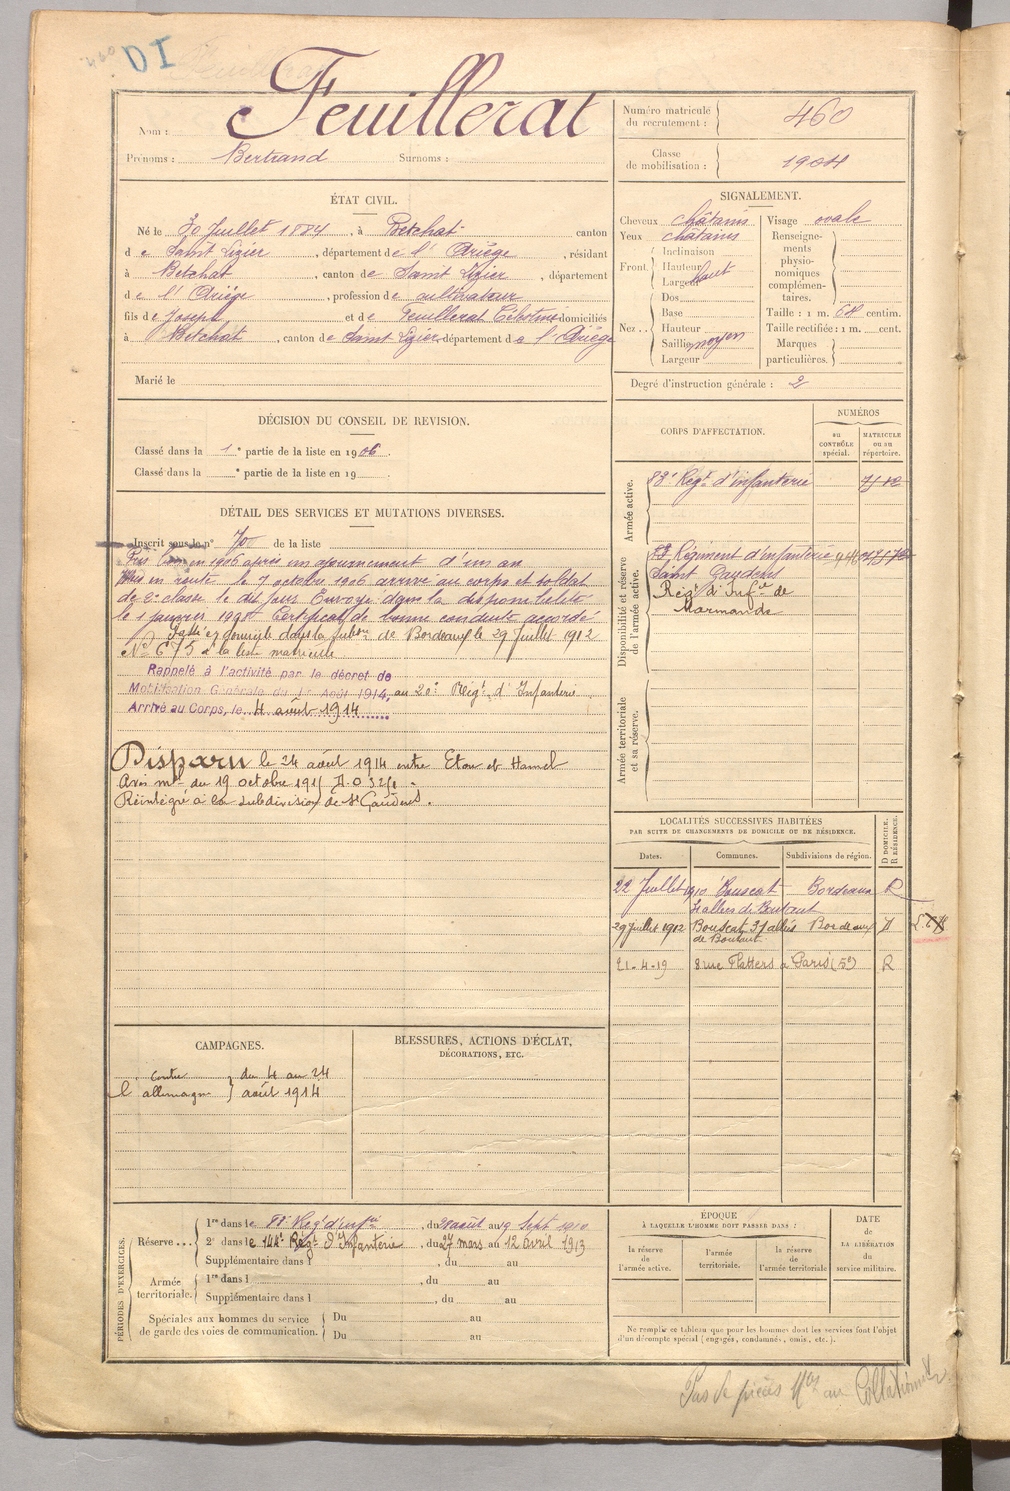 460 DI
Nom : Feuillerat
Prénoms : Bertrand Surnoms :
Numéro matricule du recrutement : 460
Classe de mobilisation : 1904
ÉTAT CIVIL.
Né le 30 Juillet 1884, à Betchat canton
de Saint Lizier, département de l'Ariège, résidant
à Betchat, canton de Saint Lizier, département
de l'Ariège, profession de cultivateur
fils de Joseph et de Feuillerat domiciliés
à Betchat, canton de Saint Lizier, département de l'Ariège
Marié le
SIGNALEMENT.
Cheveux châtains
Yeux châtains
Front. Inclinaison
Hauteur haut
Largeur
Nez.. Dos
Base
Hauteur
Saillie moyen
Largeur
Visage ovale
Renseignements physionomiques complémentaires.
Taille : 1 m. 64 centim.
Taille rectifiée : 1 m. cent.
Marques particulières.
Degré d'instruction générale : 2
DÉCISION DU CONSEIL DE REVISION.
Classé dans la 1e partie de la liste en 1906.
Classé dans la e partie de la liste en 19
DÉTAIL DES SERVICES ET MUTATIONS DIVERSES.
Inscrit sous le n° 70 de la liste
en 1906 après un ajournement d'un an
en route le 7 octobre 1906 arrivé au corps et soldat
de 2e classe le dit jour Envoyé dans la disponibilité
le 1 janvier Certificat de bonne conduite accordé
Passé domicile dans la subon de Bordeaux le 29 Juillet 1912
No 675 à la liste matricule
Rappelé à l'activité par le décret de
Mobilisation Générale du 1er Août 1914, au 20e Régt d'Infanterie
Arrivé au Corps, le 4 août 1914
Disparu le 24 août 1914 entre Eton et Hamel
Avis mel du 19 octobre
Réintégré à la subdivision de St Gaudens.
CORPS D'AFFECTATION.
NUMÉROS
au CONTRÔLE spécial.
MATRICULE ou au répertoire.
Armée active.
88e Régt d'infanterie
Disponibilité et réserve de l'armée active.
Régiment d'infanterie
Saint Gaudens
Régt d'Infie de
Marmande
Armée territoriale et sa réserve.
LOCALITÉS SUCCESSIVES HABITÉES
PAR SUITE DE CHANGEMENTS DE DOMICILE OU DE RÉSIDENCE.
Dates. Communes. Subdivisions de région. D DOMICILE. R RÉSIDENCE.
22 Juillet 1910 Bouscat Bordeaux R
allées de Boutaut
29 juillet 1912 Bouscat 31 allées Bordeaux D
de Boutaut
21-4-19 8 rue Flatters à Paris (5e) R
CAMPAGNES.
contre l'allemagne du 4 au 24 août 1914
BLESSURES, ACTIONS D'ÉCLAT,
DÉCORATIONS, ETC.
PÉRIODES D'EXERCICES.
Réserve... 1re dans le 88e Régt d'infie, du août au 19 Sept 1910
2e dans le 144e Régt d'Infanterie, du 27 mars au 12 avril 1913
Supplémentaire dans l , du au
Armée territoriale. 1re dans l , du au
Supplémentaire dans l , du au
Spéciales aux hommes du service de garde des voies de communication. Du au
Du au
ÉPOQUE
À LAQUELLE L'HOMME DOIT PASSER DANS :
la réserve de l'armée active.
l'armée territoriale.
la réserve de l'armée territoriale
DATE DE LA LIBÉRATION du service militaire.
Ne remplir ce tableau que pour les hommes dont les services font l'objet
d'un décompte spécial (engagés, condamnés, omis, etc.).
Pas de pièces